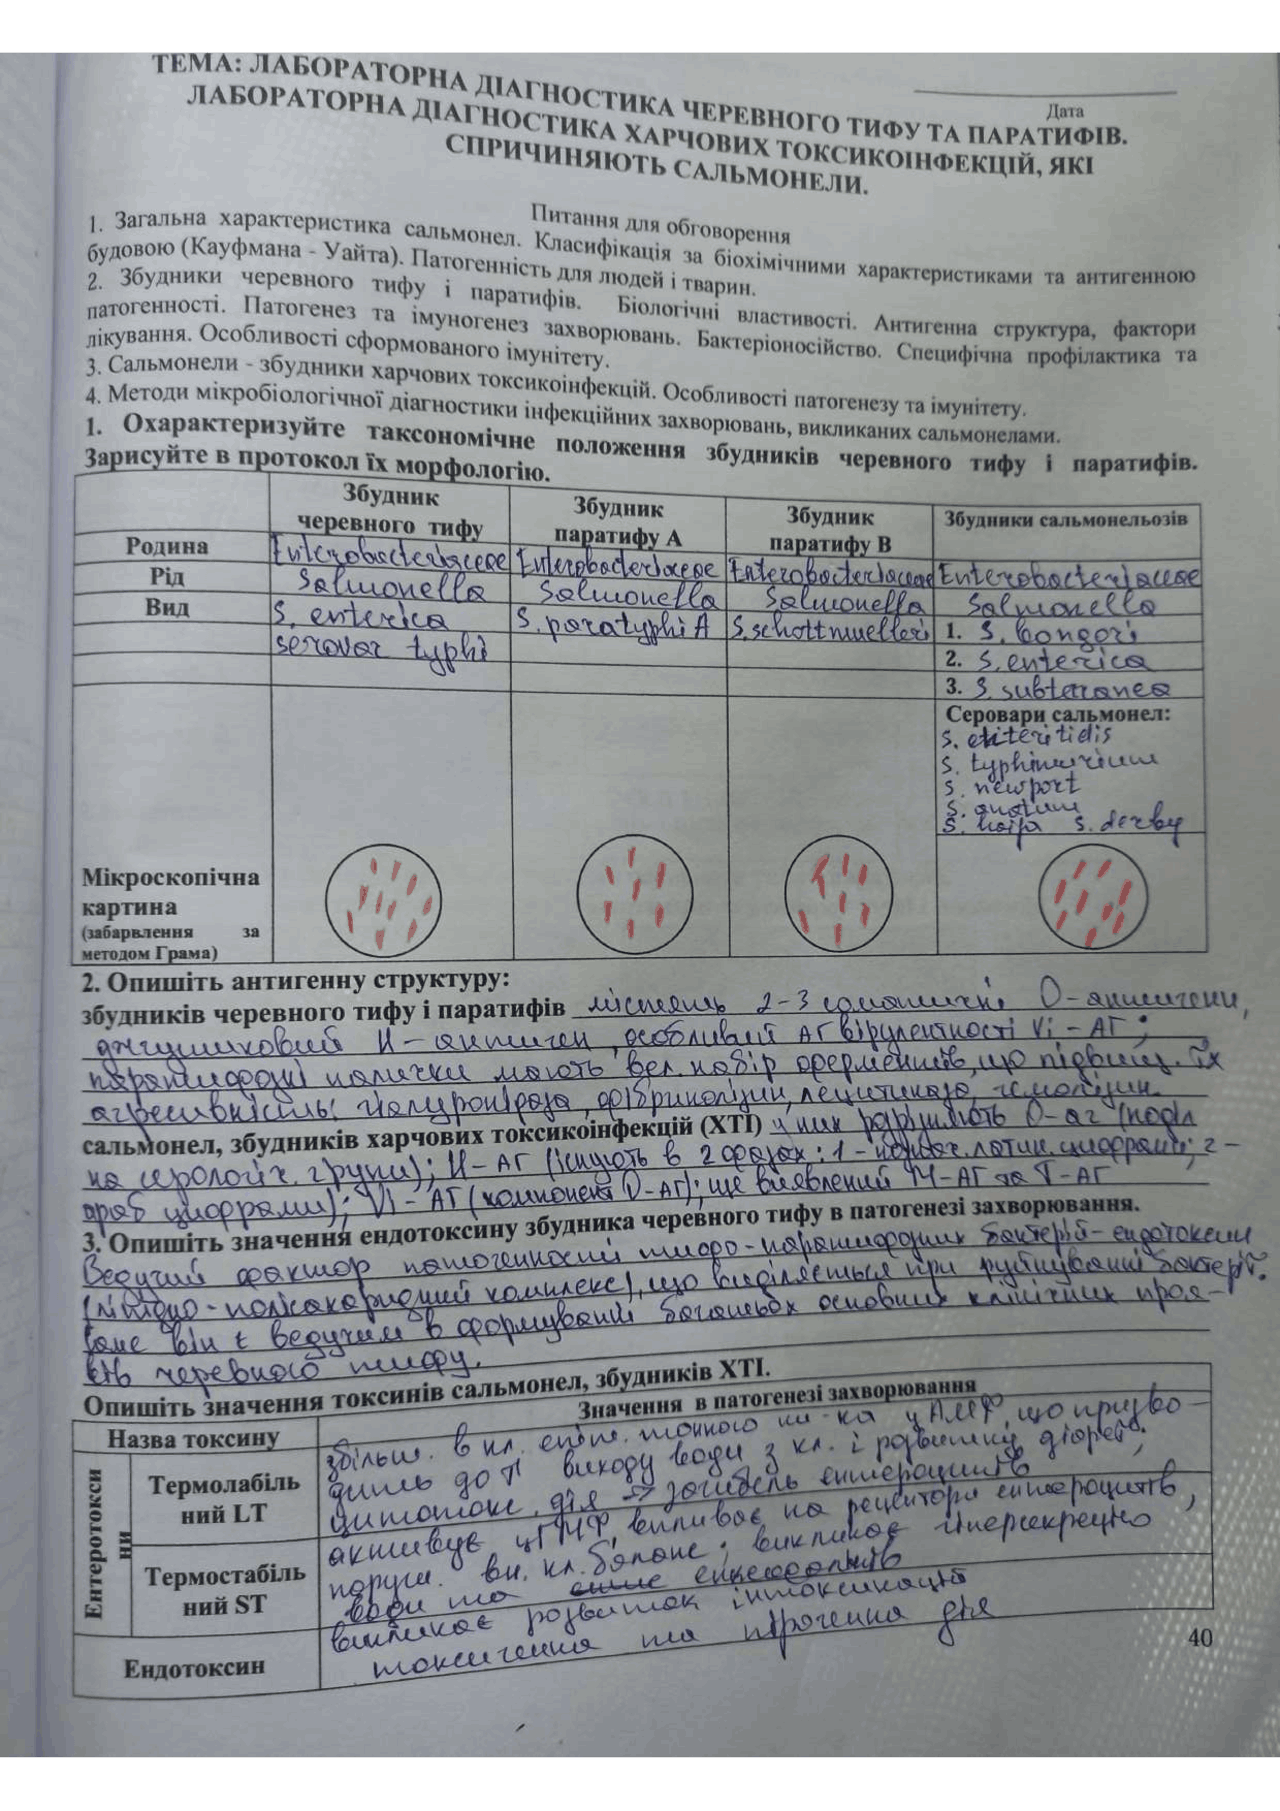 Дата
ТЕМА: ЛАБОРАТОРНА ДІАГНОСТИКА ЧЕРЕВНОГО ТИФУ ТА ПАРАТИФІВ.
ЛАБОРАТОРНА ДІАГНОСТИКА ХАРЧОВИХ ТОКСИКОІНФЕКЦІЙ, ЯКІ
СПРИЧИНЯЮТЬ САЛЬМОНЕЛИ.
Питання для обговорення
1. Загальна характеристика сальмонел. Класифікація за біохімічними характеристиками та антигенною
будовою (Кауфмана - Уайта). Патогенність для людей і тварин.
2. Збудники черевного тифу і паратифів. Біологічні властивості. Антигенна структура, фактори
патогенності. Патогенез та імуногенез захворювань. Бактеріоносійство. Специфічна профілактика та
лікування. Особливості сформованого імунітету.
3. Сальмонели - збудники харчових токсикоінфекцій. Особливості патогенезу та імунітету.
4. Методи мікробіологічної діагностики інфекційних захворювань, викликаних сальмонелами.
1. Охарактеризуйте таксономічне положення збудників черевного тифу і паратифів.
Зарисуйте в протокол їх морфологію.
Збудник черевного тифу
Збудник паратифу А
Збудник паратифу В
Збудники сальмонельозів
Родина Enterobacteriaceae Enterobacteriaceae Enterobacteriaceae Enterobacteriaceae
Рід Salmonella Salmonella Salmonella Salmonella
Вид S. enterica S. paratyphi A S. schottmuelleri 1. S. bongori
serovar typhi
2. S. enterica
3. S. subterranea
Серовари сальмонел:
S. enteritidis
S. typhimurium
S. newport
S. anatum
S. haifa S. derby
Мікроскопічна
картина
(забарвлення за
методом Грама)
2. Опишіть антигенну структуру:
збудників черевного тифу і паратифів містять 2-3 соматичні О-антигени,
джгутиковий Н-антиген, особливий АГ вірулентності Vi-АГ;
паратифозні палички мають вел. набір ферментів, що підвищ. їх
агресивність: гіалуронідаза, фібринолізин, лецитиназа, гемолізин.
сальмонел, збудників харчових токсикоінфекцій (ХТІ) у них розрізняють О-аг (поділ
на серологіч. групи); Н-АГ (існують в 2 фазах: 1- латин. цифрами; 2-
араб цифрами); Vi-АГ (компонент О-АГ); ще виявлений М-АГ та Т-АГ
3. Опишіть значення ендотоксину збудника черевного тифу в патогенезі захворювання.
Ведучий фактор патогенності тифо-паратифозних бактерій-ендотоксин
(ліпідно-полісахаридний комплекс), що виділяється при руйнуванні бактерій.
Саме він є ведучим в формуванні багатьох основних клінічних проя-
вів черевного тифу.
Опишіть значення токсинів сальмонел, збудників ХТІ.
Назва токсину
Значення в патогенезі захворювання
Ентеротоксини
Термолабільний LT
збільш. в кл. епіт. тонкого ки-ка цАМФ, що призво-
дить до виходу води з кл. і розвитку діареї;
цитотокс. дія → загибель ентероцитів
Термостабільний ST
активує цГМФ, впливає на рецептори ентероцитів,
поруш. вн. кл. баланс; викликає гіперсекрецію
води та
Ендотоксин
викликає розвиток інтоксикації
токсигенна та пірогенна дія
40